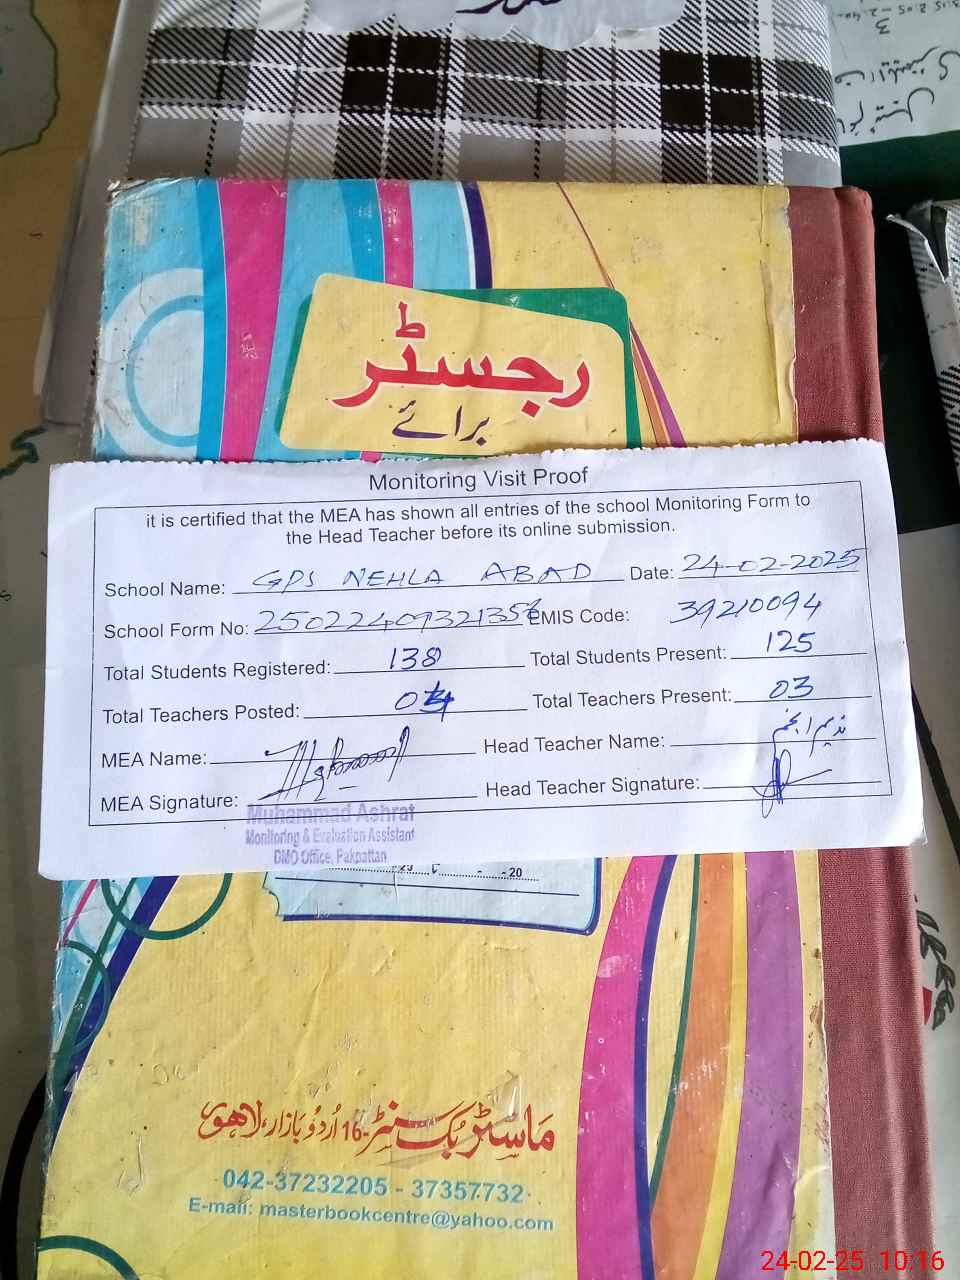 رجسٹر
برائے
Monitoring Visit Proof
it is certified that the MEA has shown all entries of the school Monitoring Form to
the Head Teacher before its online submission.
School Name: GPS NEHLA ABAD Date: 24-02-2025
School Form No: EMIS Code: 39210094
Total Students Registered: 138 Total Students Present: 125
Total Teachers Posted: Total Teachers Present: 03
MEA Name: Head Teacher Name: ندیم انجم
MEA Signature: Head Teacher Signature:
Muhammad Ashraf
Monitoring & Evaluation Assistant
DMO Office, Pakpattan
20
ماسٹر بک سنٹر-16 اُردُو بازار، لاہور
042-37232205 - 37357732
E-mail: masterbookcentre@yahoo.com
24-02-25 10:16